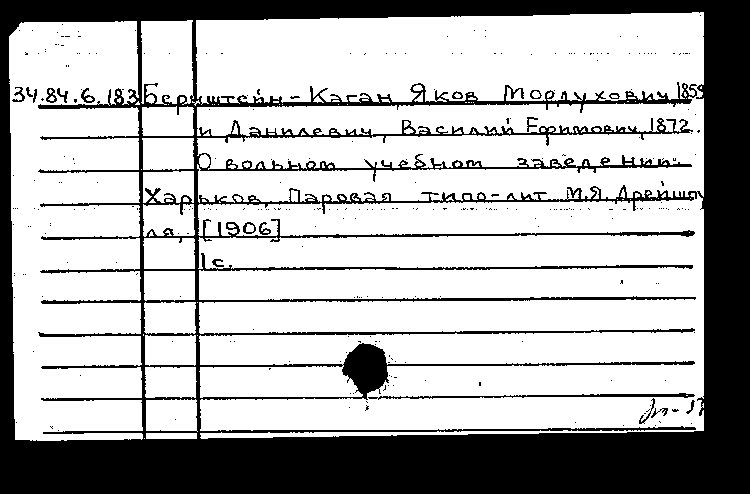 34.84.6.183 Бернштейн-Каган, Яков Мордухович, 1859
и Данилевич, Василий Ефимович, 1872.
О вольном учебном заведении.
Харьков, Паровая типо-лит М.Я. Дрейшпу
ля, [1906]
1с.